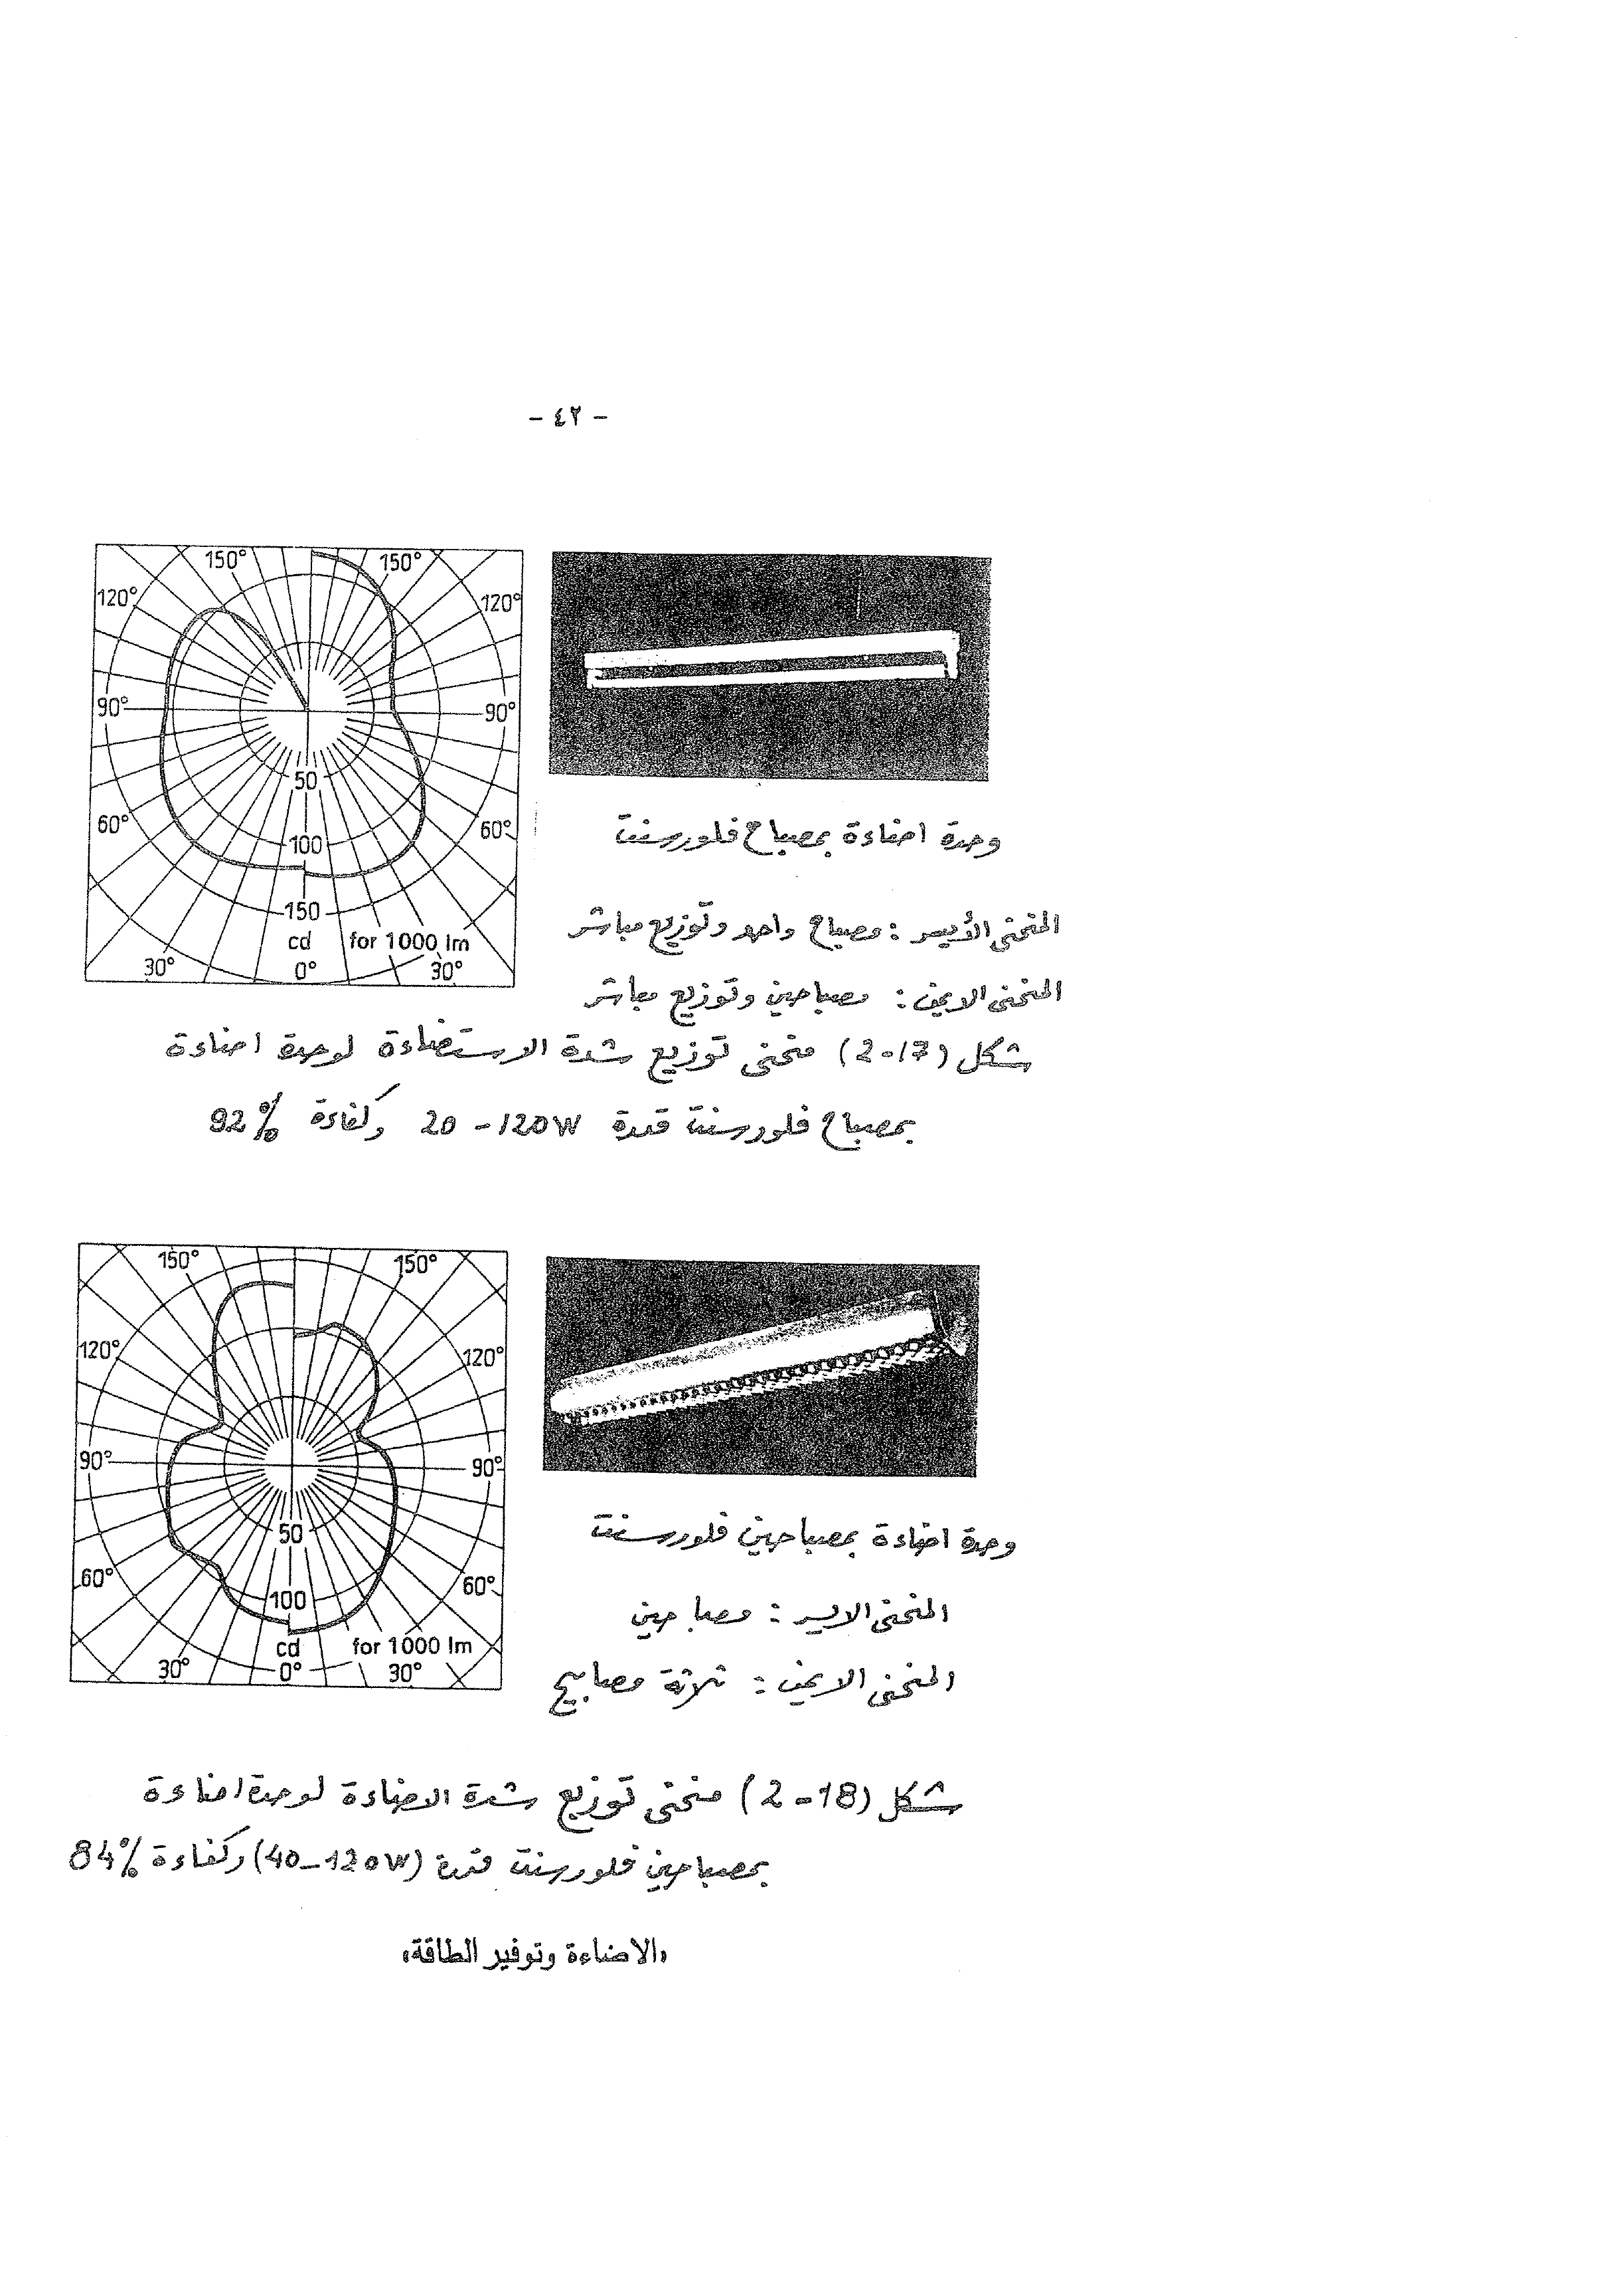 - ٤٢ -
150° 150°
120° 120°
90° 90°
50
60° 60°
100
150
cd for 1000 lm
30° 0° 30°
وحدة اضاءة بمصباح فلورسنت
المنحنى الأيسر : مصباح واحد وتوزيع مباشر
المنحنى الايمن : مصباحين وتوزيع مباشر
شكل (2-17) منحنى توزيع شدة الاستضاءة لوحدة اضاءة
بمصباح فلورسنت قدرة 20-120W وكفاءة 92%
150° 150°
120° 120°
90° 90°
50
60° 60°
100
cd for 1000 lm
30° 0° 30°
وحدة اضاءة بمصباحين فلورسنت
المنحنى الايسر : مصباحين
المنحنى الايمن : ثلاثة مصابيح
شكل (2-18) منحنى توزيع شدة الاضاءة لوحدة اضاءة
بمصباحين فلورسنت قدرة (40-120W) وكفاءة 84%
«الاضاءة وتوفير الطاقة»